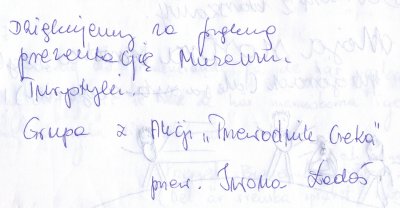 Dziękujemy za piękną
prezentację Muzeum
Turystyki.
Grupa z Akcji „Przewodnik Czeka"
przew. Iwona Ładoś.